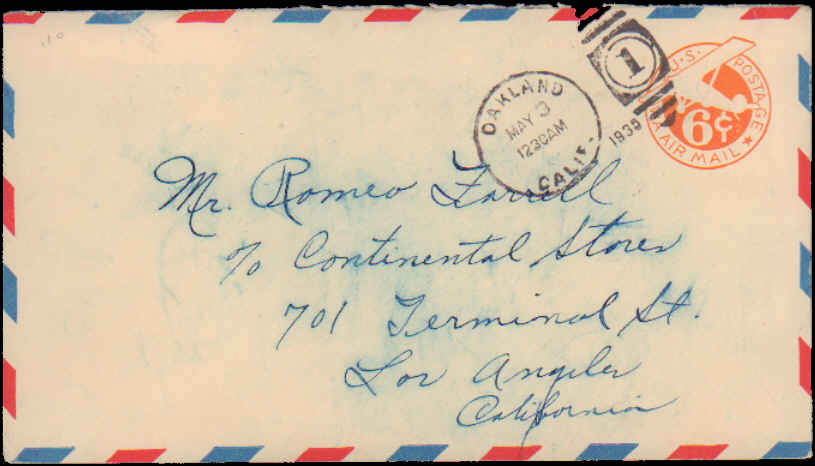 OAKLAND
CALIF.
MAY 3
1230AM
1939
1
U.S. POSTAGE
6¢
VIA AIR MAIL
Mr. Romeo Farrell
c/o Continental Stores
701 Terminal St.
Los Angeles
California